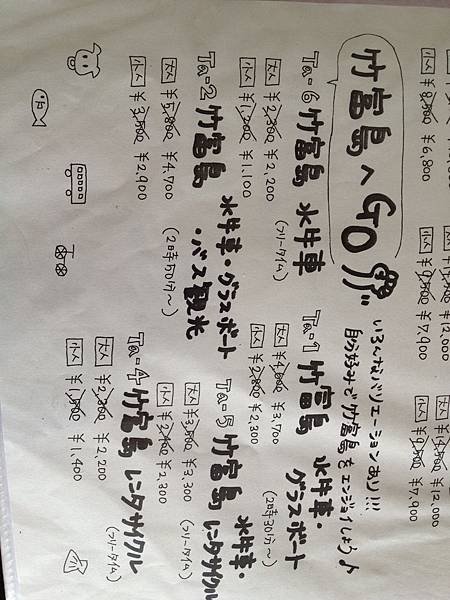 ￥12,000
￥12,000
小人 ￥6,800
小人 ￥7,900
小人 ￥7,900
竹富島へGO
いろんなバリエーションあり!!!
自分好みで竹富島をエンジョイしよう♪
Ta-6 竹富島 水牛車
(フリータイム)
大人 ￥2,300 ￥2,200
小人 ￥1,200 ￥1,100
Ta-1 竹富島 水牛車・
グラスボート
(2時30分〜)
大人 ￥3,700
小人 ￥2,300
Ta-2 竹富島 水牛車・グラスボート
・バス観光
(2時30分〜)
大人 ￥4,700
小人 ￥2,900
Ta-5 竹富島 水牛車・
レンタサイクル
(フリータイム)
大人 ￥3,300
小人 ￥2,300
Ta-4 竹富島 レンタサイクル
(フリータイム)
大人 ￥2,200
小人 ￥1,400